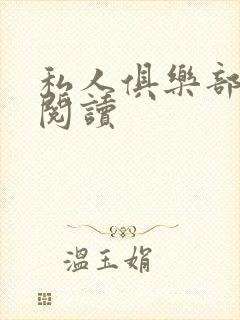 私人俱樂部
閱讀
溫玉娟